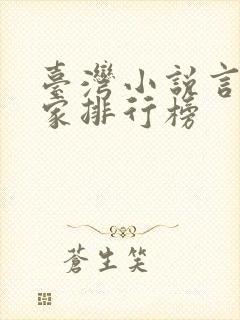 臺灣小說言
家排行榜
蒼生笑